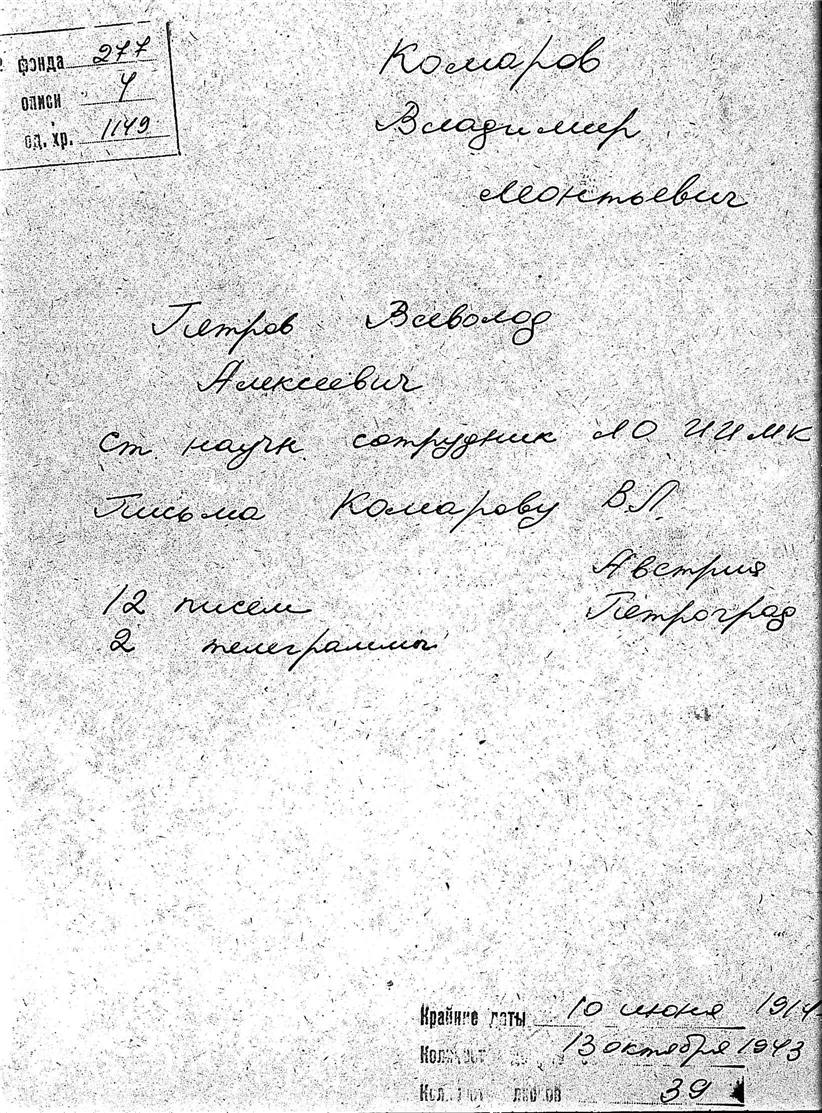 фонда 277
описи 4
од. хр. 1149
Комаров
Владимир
Леонтьевич
Петров Всеволод
Алексеевич
ст. научн. сотрудник ЛО ИИМК
Письма Комарову В.Л.
Австрия
12 писем Петроград
2 телеграммы
Крайние даты 10 июня 1914
13 октября 1943
39